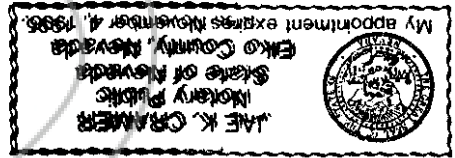 JAE K. CRAMER
Notary Public
State of Nevada
Elko County, Nevada
My appointment expires November 4, 1996.